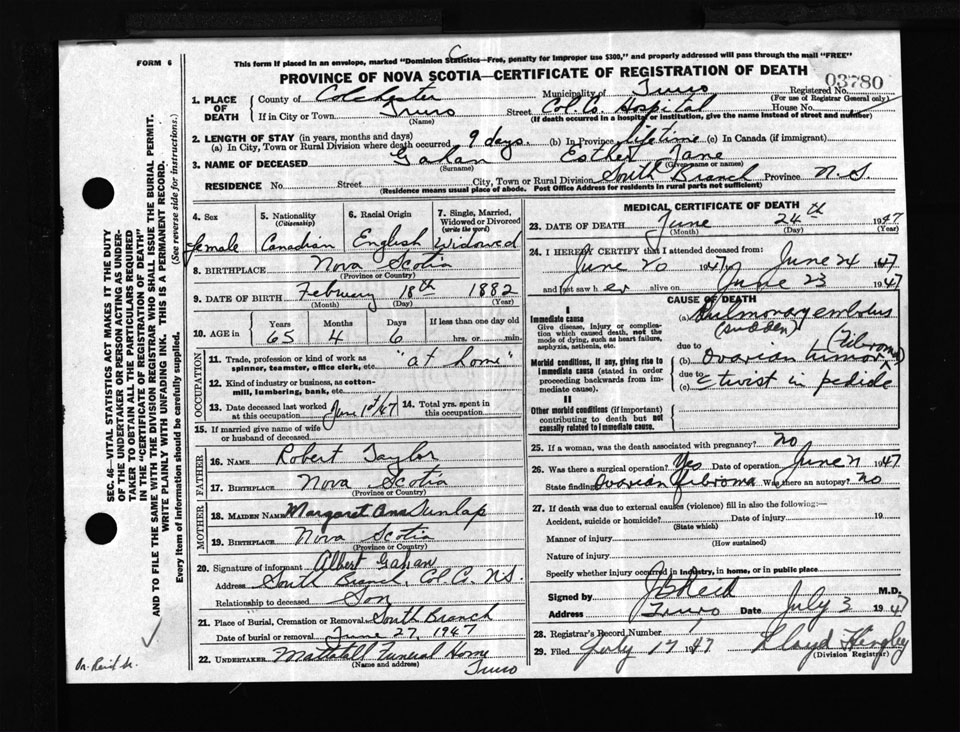 FORM 6
This form if placed in an envelope, marked "Dominion Statistics—Free, penalty for improper use $300," and properly addressed will pass through the mail "FREE"
C
PROVINCE OF NOVA SCOTIA—CERTIFICATE OF REGISTRATION OF DEATH
03780
1. PLACE OF DEATH
County of Colchester Municipality of Truro Registered No.
(For use of Registrar General only)
If in City or Town Truro Street Col. Co. Hospital House No.
(Name) (If death occurred in a hospital or institution, give name instead of street and number)
2. LENGTH OF STAY (in years, months and days)
(a) In City, Town or Rural Division where death occurred 9 days. (b) In Province lifetime (c) In Canada (if immigrant)
3. NAME OF DECEASED Gahan Esther Jane
(Surname) (Given name or names)
RESIDENCE No. Street City, Town or Rural Division South Branch Province N.S.
(Residence means usual place of abode. Post Office Address for residents in rural parts not sufficient)
4. Sex
female
5. Nationality
(Citizenship)
Canadian
6. Racial Origin
English
7. Single, Married, Widowed or Divorced
(write the word)
Widowed
8. BIRTHPLACE Nova Scotia
(Province or Country)
9. DATE OF BIRTH February 18th 1882
(Month) (Day) (Year)
10. AGE in
Years Months Days If less than one day old
65 4 6 hrs. or min.
OCCUPATION
11. Trade, profession or kind of work as
spinner, teamster, office clerk, etc. "at home"
12. Kind of industry or business, as cotton-
mill, lumbering, bank, etc.
13. Date deceased last worked at this occupation June 1st/47
14. Total yrs. spent in this occupation
15. If married give name of wife
or husband of deceased
FATHER
16. NAME Robert Taylor
17. BIRTHPLACE Nova Scotia
(Province or Country)
MOTHER
18. MAIDEN NAME Margaret Ann Dunlap
19. BIRTHPLACE Nova Scotia
(Province or Country)
20. Signature of informant Albert Gahan
Address South Branch, Col Co. N.S.
Relationship to deceased Son
21. Place of Burial, Cremation or Removal South Branch
Date of burial or removal June 27, 1947
22. UNDERTAKER Mattatall Funeral Home
(Name and address) Truro
MEDICAL CERTIFICATE OF DEATH
23. DATE OF DEATH June 24th 1947
(Month) (Day) (Year)
24. I HEREBY CERTIFY that I attended deceased from:
June 20 1947 June 24 1947
and last saw her alive on June 23 1947
CAUSE OF DEATH
I
Immediate cause
Give disease, injury or complica-
tion which caused death, not the
mode of dying, such as heart failure,
asphyxia, asthenia, etc.
(a) Pulmonary embolus
(sudden)
due to
Morbid conditions, if any, giving rise to
immediate cause (stated in order
proceeding backwards from
immediate cause).
(b) Ovarian tumor (Fibroma)
due to
(c) c twist in pedicle
II
Other morbid conditions (if important)
contributing to death but not
causally related to immediate cause.
25. If a woman, was the death associated with pregnancy? no
26. Was there a surgical operation? Yes Date of operation June 21 1947
State findings Ovarian fibroma Was there an autopsy? no
27. If death was due to external causes (violence) fill in also the following:—
Accident, suicide or homicide? Date of injury 19
(State which)
Manner of injury
(How sustained)
Nature of injury
Specify whether injury occurred in industry, in home, or in public place
Signed by J B Reid M.D.
Address Truro Date July 3 1947
28. Registrar's Record Number
29. Filed July 17 1947 Lloyd
(Division Registrar)
SEC. 46—VITAL STATISTICS ACT MAKES IT THE DUTY
OF THE UNDERTAKER OR PERSON ACTING AS UNDER-
TAKER TO OBTAIN ALL THE PARTICULARS REQUIRED
IN THE "CERTIFICATE OF REGISTRATION OF DEATH"
AND TO FILE THE SAME WITH THE DIVISION REGISTRAR WHO SHALL ISSUE THE BURIAL PERMIT.
WRITE PLAINLY WITH UNFADING INK. THIS IS A PERMANENT RECORD.
Every item of information should be carefully supplied. (See reverse side for instructions.)